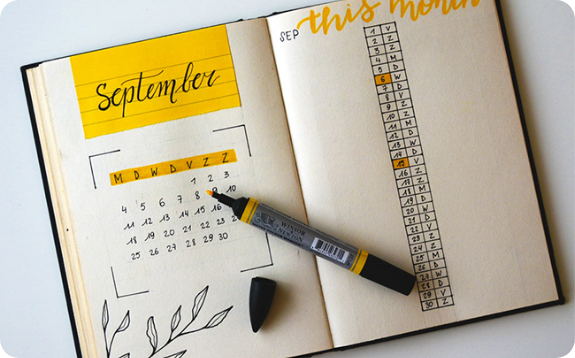 September
M D W D V Z Z
1 2 3
4 5 6 7 8 9 10
11 12 13 14 15 16
18 19 20 21 22 23
25 26 27 28 29 30
this month
SEP
1 V
2 Z
3 Z
4 M
5 D
6 W
7 D
8 V
9 Z
10 Z
11 M
12 D
13 W
14 D
15 V
16 Z
17 Z
18 M
19 D
20 W
21 D
22 V
23 Z
24 Z
25 M
26 D
27 W
28 D
29 V
30 Z
WINSOR
& NEWTON